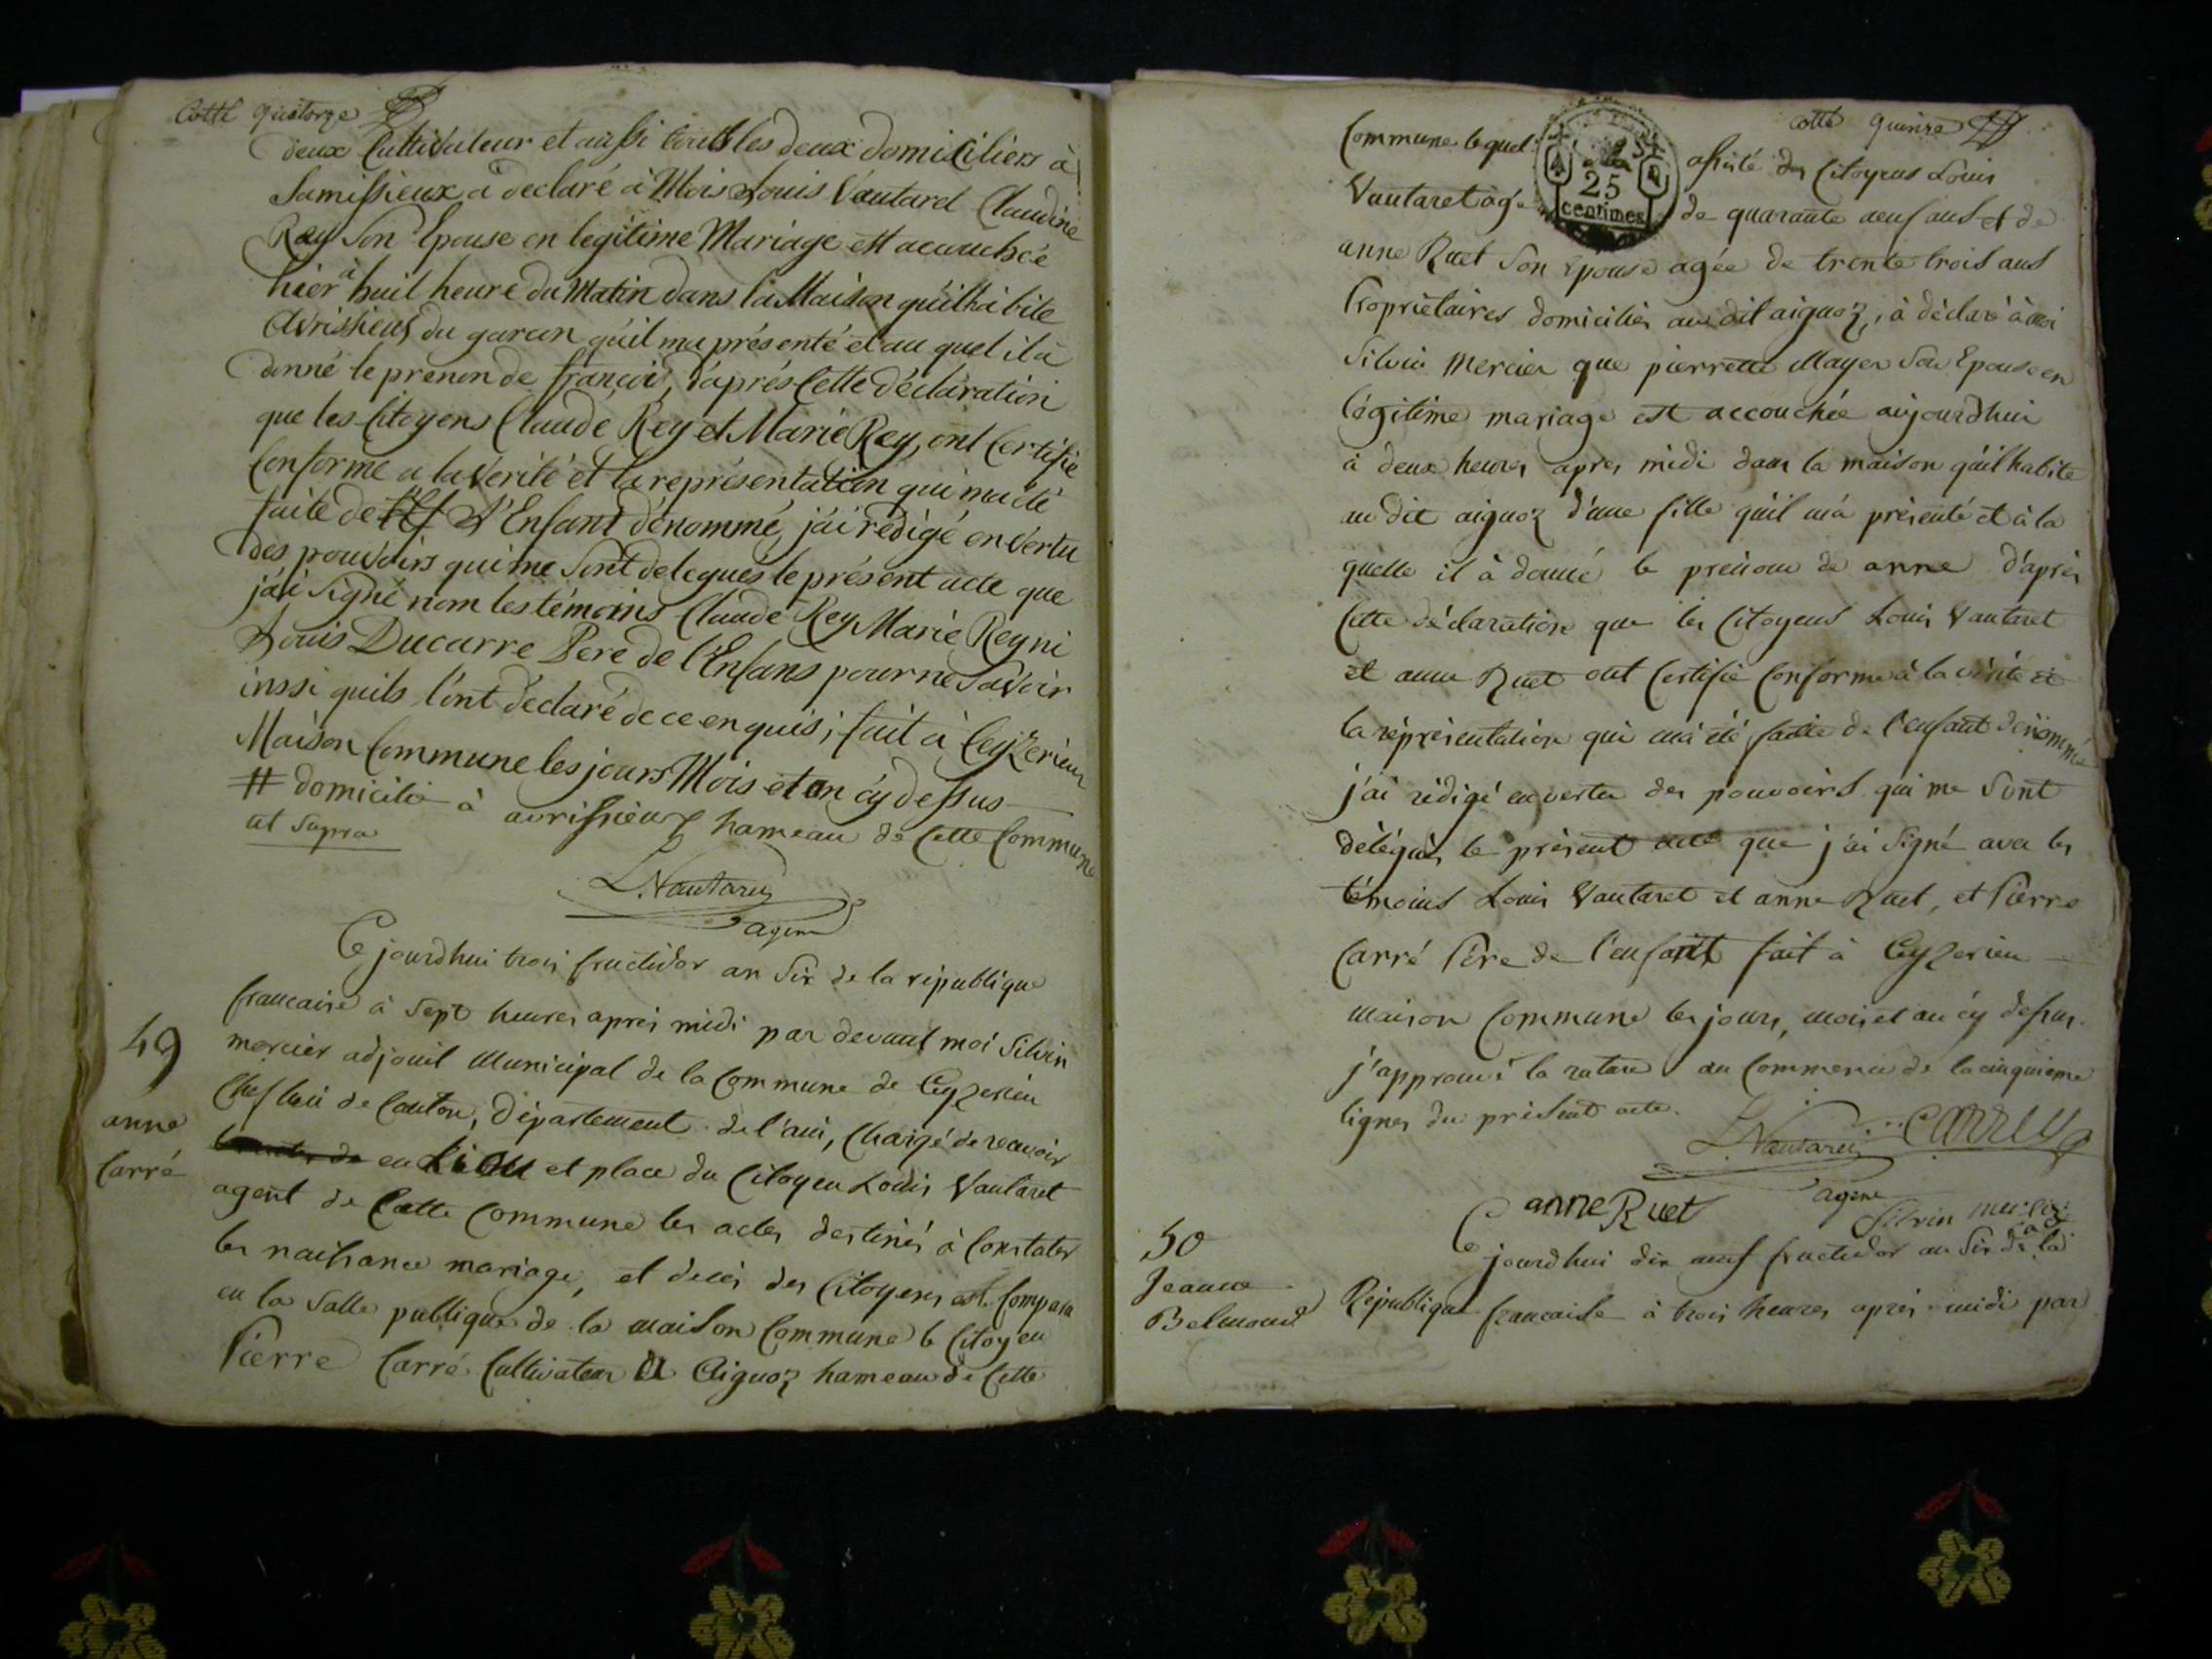 Cotté quatorze
deux Cultivateur et aussi tous les deux domiciliers à
Samissieux à declaré à Mois Louis Vautaret Claudine
Rey Son Epouse en legitime Mariage est acouchéé
hier à huil heure du Matin dans la Maison quil habite
Avrissieux du garcon qúil ma présenté et au quel il à
donné le prenon de françois, d'aprés Cette déclaration
que les Citoyens Claude Rey et Marie Rey, ont Certifie
Conforme a la Verité et la représentation qui ma été
faite de l'Enfant dénommé, j'ái rédigé en vertu
des pouvoirs qui me Sont delegués le présent acte que
j'ái Signé nom les témoins Claude Rey Marie Rey ni
Louis Ducarre Pere de l'Enfans pour ne Savoir
inssi quils l'ont déclaré de ce en quis; fait à Ceyzerieu
Maison Commune les jours Mois et an cÿ dessus
# domicilié à avrissieux hameau de Cette Commune
ut Supra
L. Vautaret
agent
Ce jourdhui trois fructidor an Six de la république
francaise à Sept heures après midi par devant moi Silvin
mercier adjouit Municipal de la Commune de Ceyzerieu
49
Chef lieu de Canton, Département de l'ain, Chargé de recevoir
anne
en Lieu et place du Citoyen Louis Vautaret
Carré
agent de Cette Commune les actes destinés à Constater
les naissance mariage, et decès des Citoyens est Compara
en la Salle publique de la maison Commune le Citoyen
Pierre Carré Cultivateur à Aignoz hameau de Cette
cotté quinze
Commune lequel assisté des Citoyens Louis
25
centimes
Vautaret agé de quarante neuf ans et de
anne Ruet Son Epouse agée de trente trois ans
Propriètaires domiciliés au dit aignoz, à déclaré à moi
Silvin mercier que pierrette Mayer Son Epouse en
légitime mariage est accouchée aujourdhui
à deux heures apres midi dans la maison qu'il habite
au dit aignoz d'une fille qu'il m'a présenté et à la
quelle il à donné le prenom de anne d'après
Cette déclaration que les Citoyens Louis Vautaret
et anne Ruet ont Certifié Conforme à la vérité et
la réprésentation qui m'a été faitte de l'enfant dénommé
j'ai rédigé en vertu des pouvoirs qui me Sont
délégués le présent acte que j'ai Signé avec les
témoins Louis Vautaret et anne Ruet, et Pierre
Carré Pére de l'enfant fait à Ceyzerieu
maison Commune les jours, mois et an cy dessus.
j'approuve la rature au Commencé de la cinquieme
lignes du présent acte.
L. Vautaret CARRE
agent
anne Ruet
Silvin mercier
50
Ce jourdhui dix neuf fructidor an Six de la
Jeanne
Belmond
République francaise à trois heures après midi par